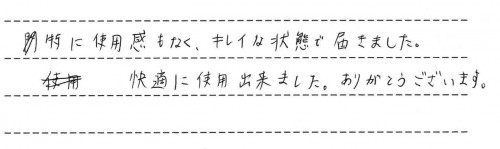 特に使用感もなく、キレイな状態で届きました。
快適に使用出来ました。ありがとうございます。